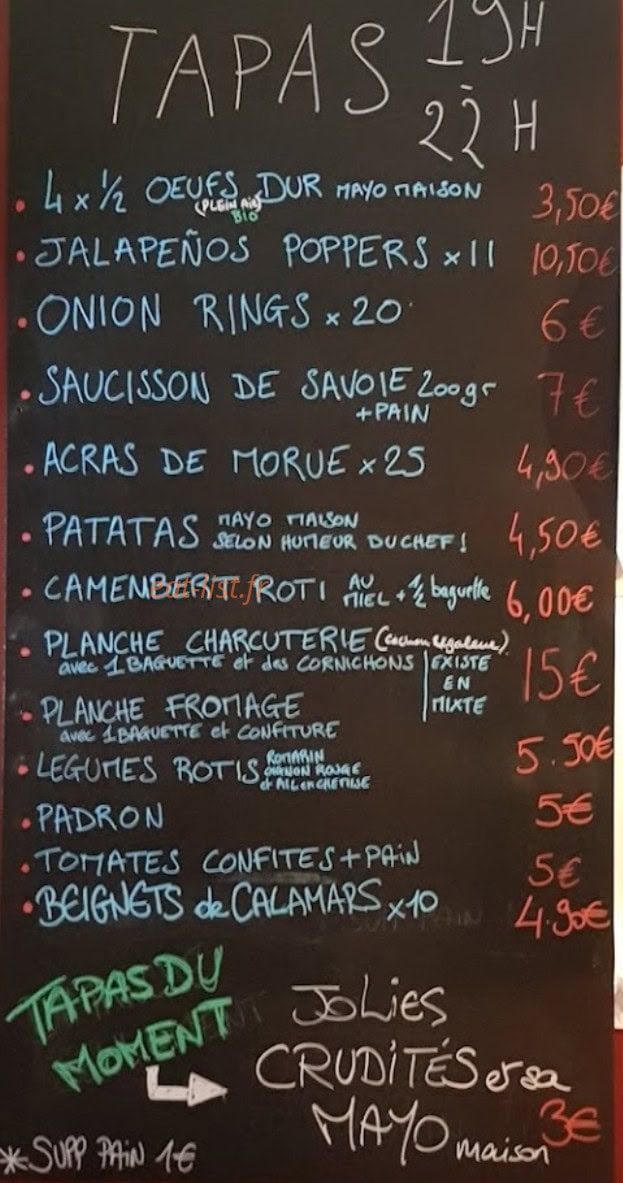 TAPAS 19H
-
22H
• 4 x 1/2 OEUFS DUR MAYO MAISON 3,50€
(PLEIN AIR)
BIO
• JALAPEÑOS POPPERS x 11 10,50€
• ONION RINGS x 20 6€
• SAUCISSON DE SAVOIE 200gr 7€
+ PAIN
• ACRAS DE MORUE x 25 4,90€
• PATATAS MAYO MAISON 4,50€
SELON HUMEUR DU CHEF !
• CAMEMBERT ROTI AU MIEL + 1/2 baguette 6,00€
• PLANCHE CHARCUTERIE (cochon) 15€
avec 1 BAGUETTE et des CORNICHONS
EXISTE
EN
MIXTE
• PLANCHE FROMAGE
avec 1 BAGUETTE et CONFITURE
• LEGUMES ROTIS ROMARIN 5.50€
OIGNON ROUGE
et AIL en CHEMISE
• PADRON 5€
• TOMATES CONFITES + PAIN 5€
• BEIGNETS de CALAMARS x 10 4.90€
TAPAS DU
MOMENT
JOLIES
CRUDITÉS et sa
MAYO maison 3€
* SUPP PAIN 1€